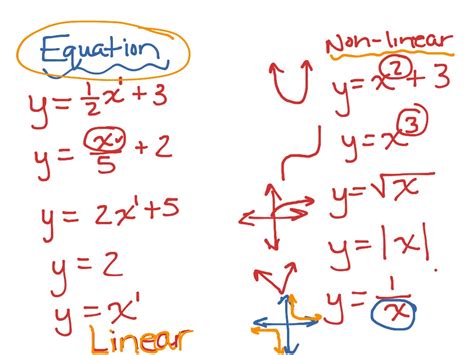 Equation
y = 1/2 x¹ + 3
y = x/5 + 2
y = 2x¹ + 5
y = 2
y = x¹
Linear
Non-linear
y = x² + 3
y = x³
y = √x
y = |x|
y = 1/x